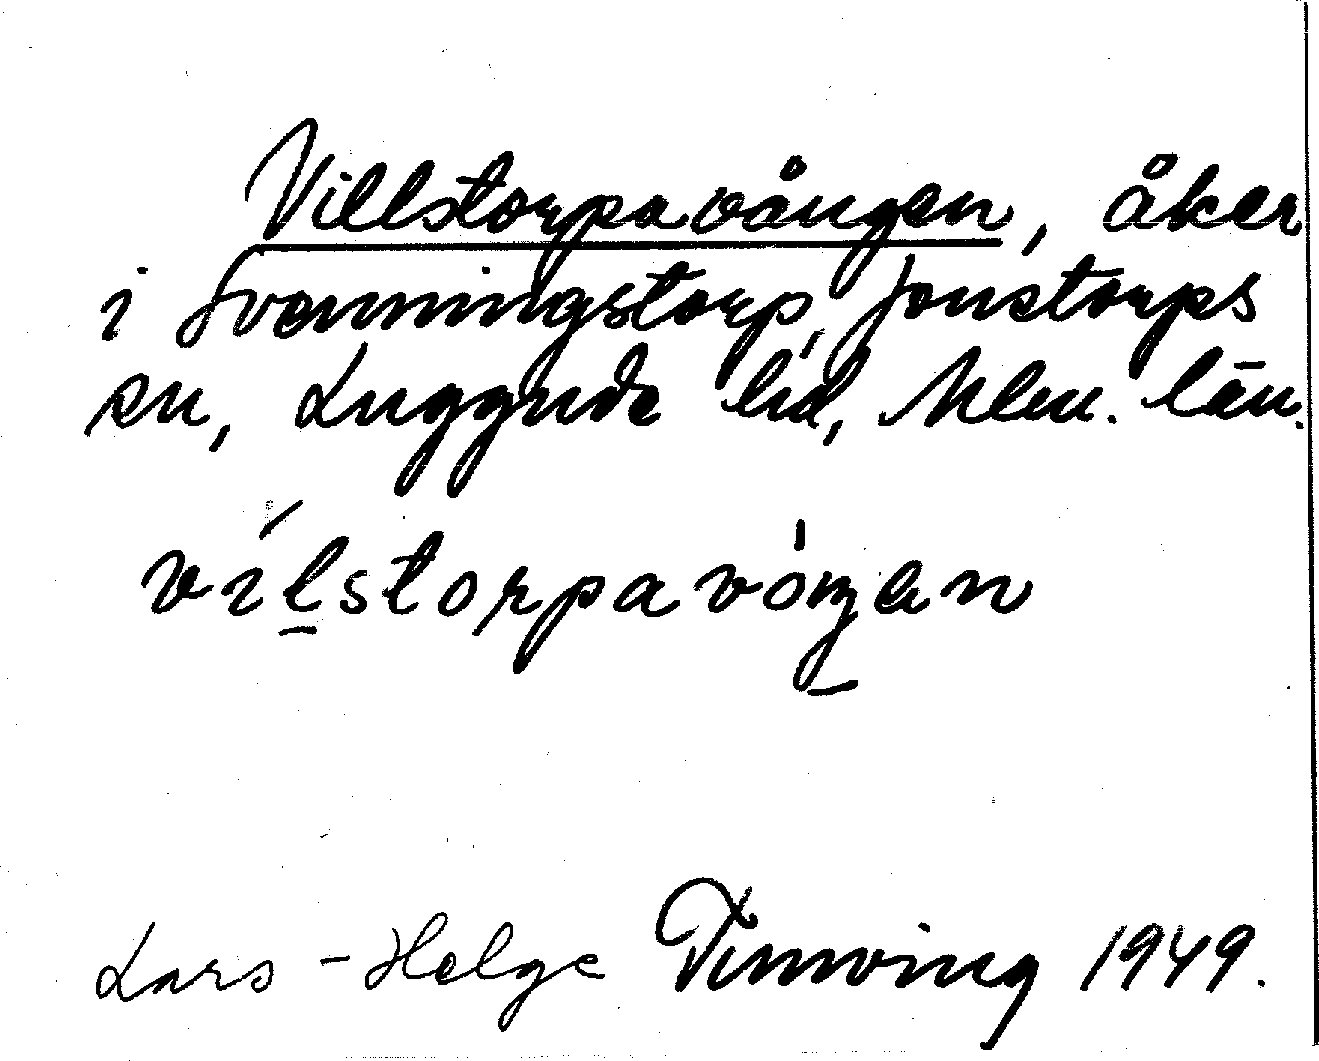 Villstorpavången, åker
i Svenningstorp, Jonstorps
sn, Luggude hd, Mlm. län.
vilstorpavóŋen
Lars-Helge 1949.